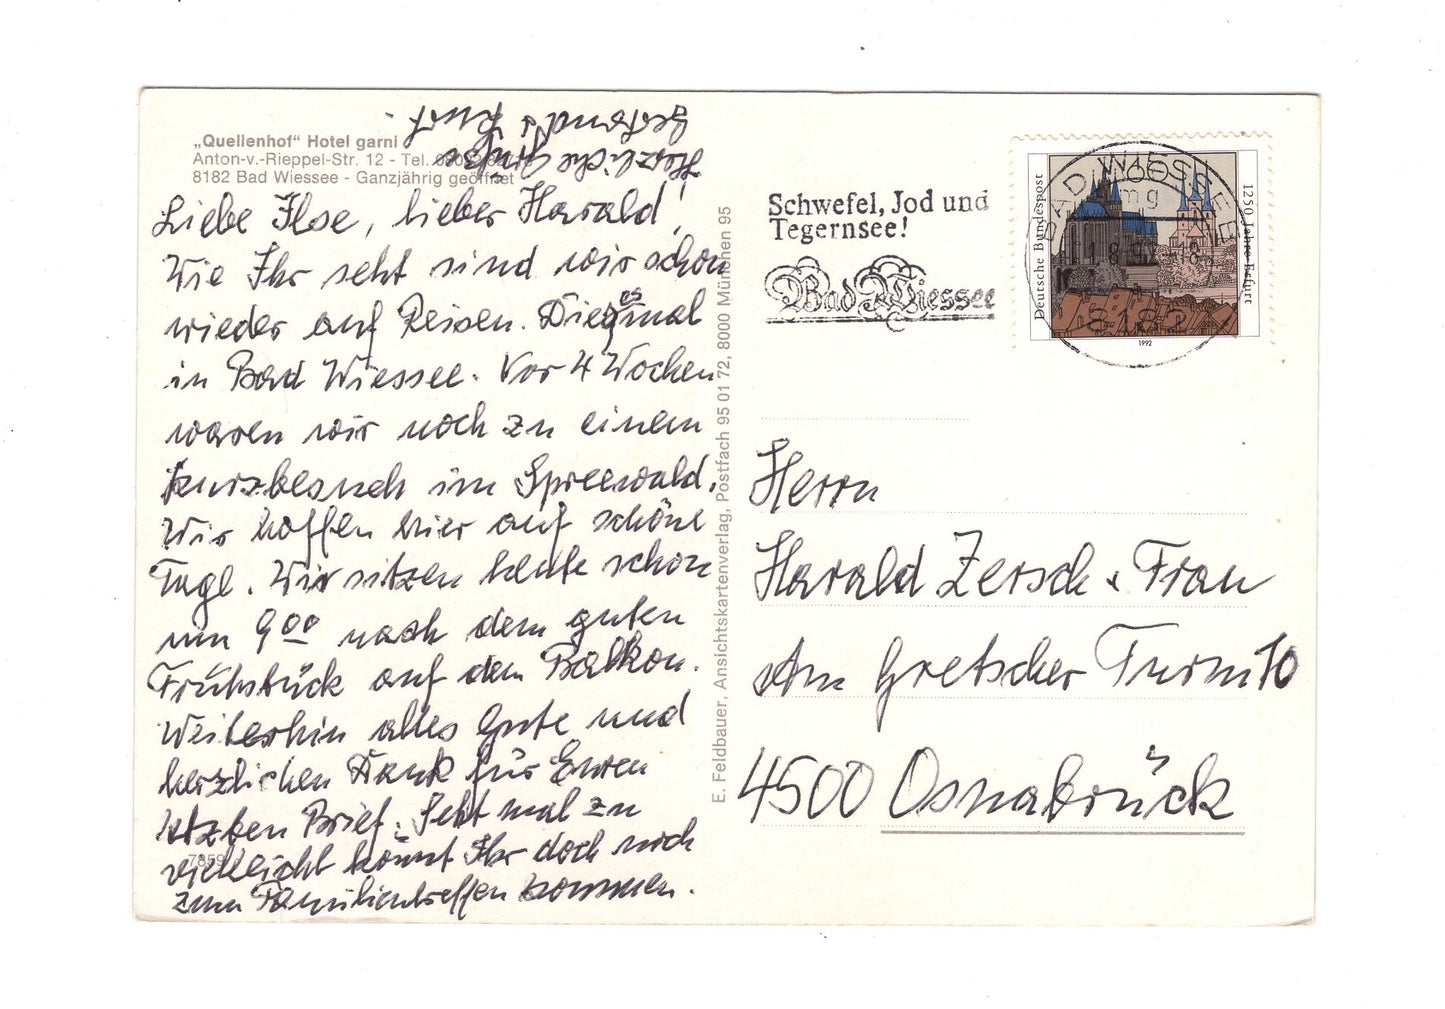 „Quellenhof“ Hotel garni
Anton-v.-Rieppel-Str. 12 - Tel.
8182 Bad Wiessee - Ganzjährig geöffnet
Liebe Ilse, lieber Harald!
Wie Ihr seht sind wir schon
wieder auf Reisen. Diesmal
in Bad Wiessee. Vor 4 Wochen
waren wir noch zu einem
Kurzbesuch im Spreewald.
Wir hoffen hier auf schöne
Tage. Wir sitzen heute schon
um 9 00 nach dem guten
Frühstück auf dem Balkon.
Weiterhin alles Gute und
herzlichen Dank für Euren
letzten Brief. Seht mal zu
vielleicht könnt Ihr doch noch
zum Familientreffen kommen.
Herzliche Grüße
Gertraud u. Kurt.
7859
E. Feldbauer, Ansichtskartenverlag, Postfach 95 01 72, 8000 München 95
Schwefel, Jod und
Tegernsee!
Bad Wiessee
BAD WIESSEE
mg
8182
Deutsche Bundespost
1250 Jahre Erfurt
1992
Herrn
Harald Zersch + Frau
Am Gretscher Turm 10
4500 Osnabrück